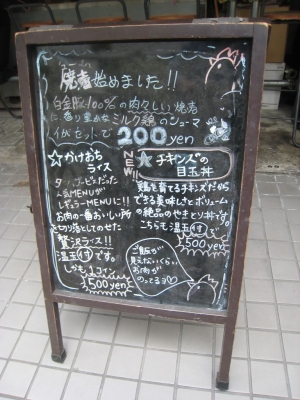 焼売始めました!!
白金豚100%の肉々しい焼売
に、香り豊かなミルク鶏のシューマ
イがセットで 200yen
☆かけおち
ライス
だった
人気MENUが
レギュラーMENUに!!
お肉の一番おいしい所
を切り落としてのせた
贅沢ライス!!
温玉付です。
しかも1コイン
500yen
NEW!!
☆チキンズの
目玉丼
鶏を育てるチキンズだから
できる美味しさとボリューム
の絶品のやきとり丼です。
こちらも温玉付
500yen
ご飯が
見えないくらい
お肉が
のってるヨ♡